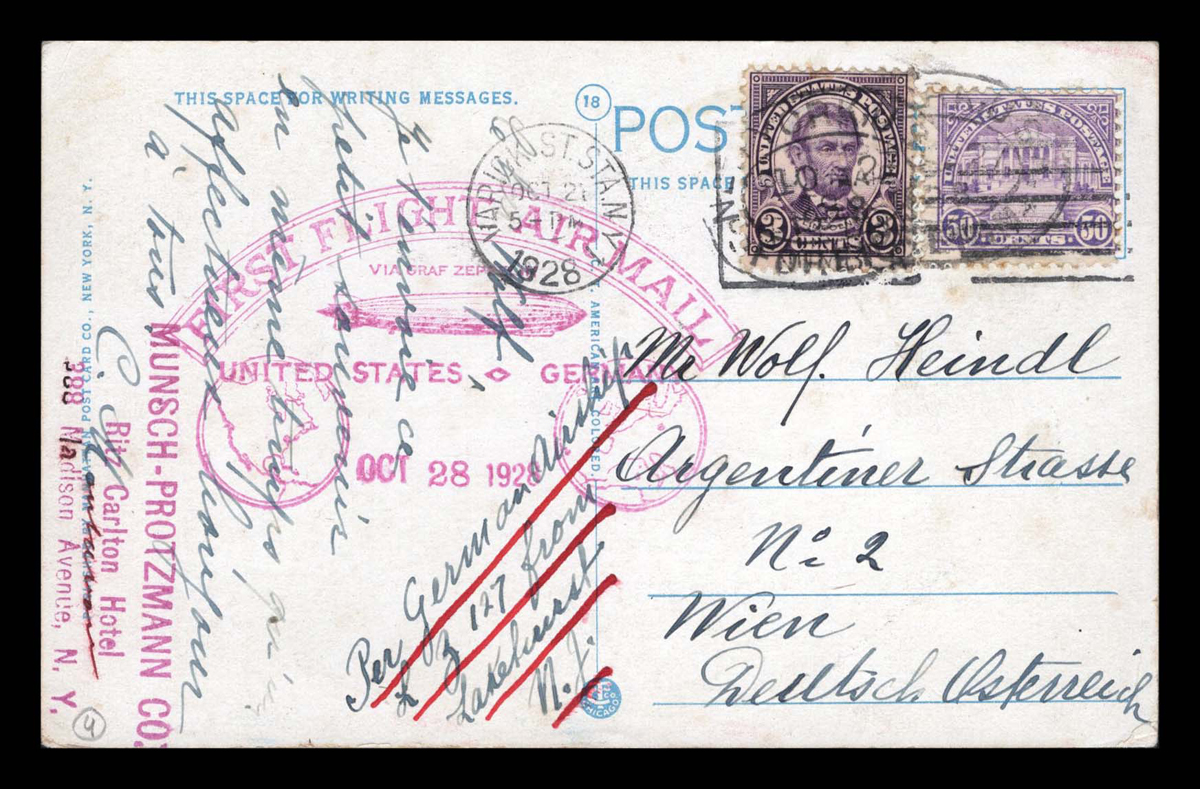 THIS SPACE FOR WRITING MESSAGES.
18
POST
THIS SPACE
UNITED STATES POSTAGE
3 CENTS 3
UNITED STATES POSTAGE
50 CENTS 50
VARICK ST. STA. N.Y.
OCT 21
5-PM
1928
FIRST FLIGHT AIR MAIL
VIA GRAF ZEP
UNITED STATES GERMANY
OCT 28 1928
Je t'envoie ce
petit souvenir
en même temps
affectueux bonjour
à tous,
Per German Airship
L Z 127 from
Lakehurst
N.J.
Mr Wolf. Heindl
Argentiner Strasse
No 2
Wien
Deutsch Österreich
MUNSCH-PROTZMANN CO.
Ritz Carlton Hotel
388 Madison Avenue, N. Y.
POST CARD CO., NEW YORK, N. Y.
AMERICAN
COLORED
CHICAGO
4